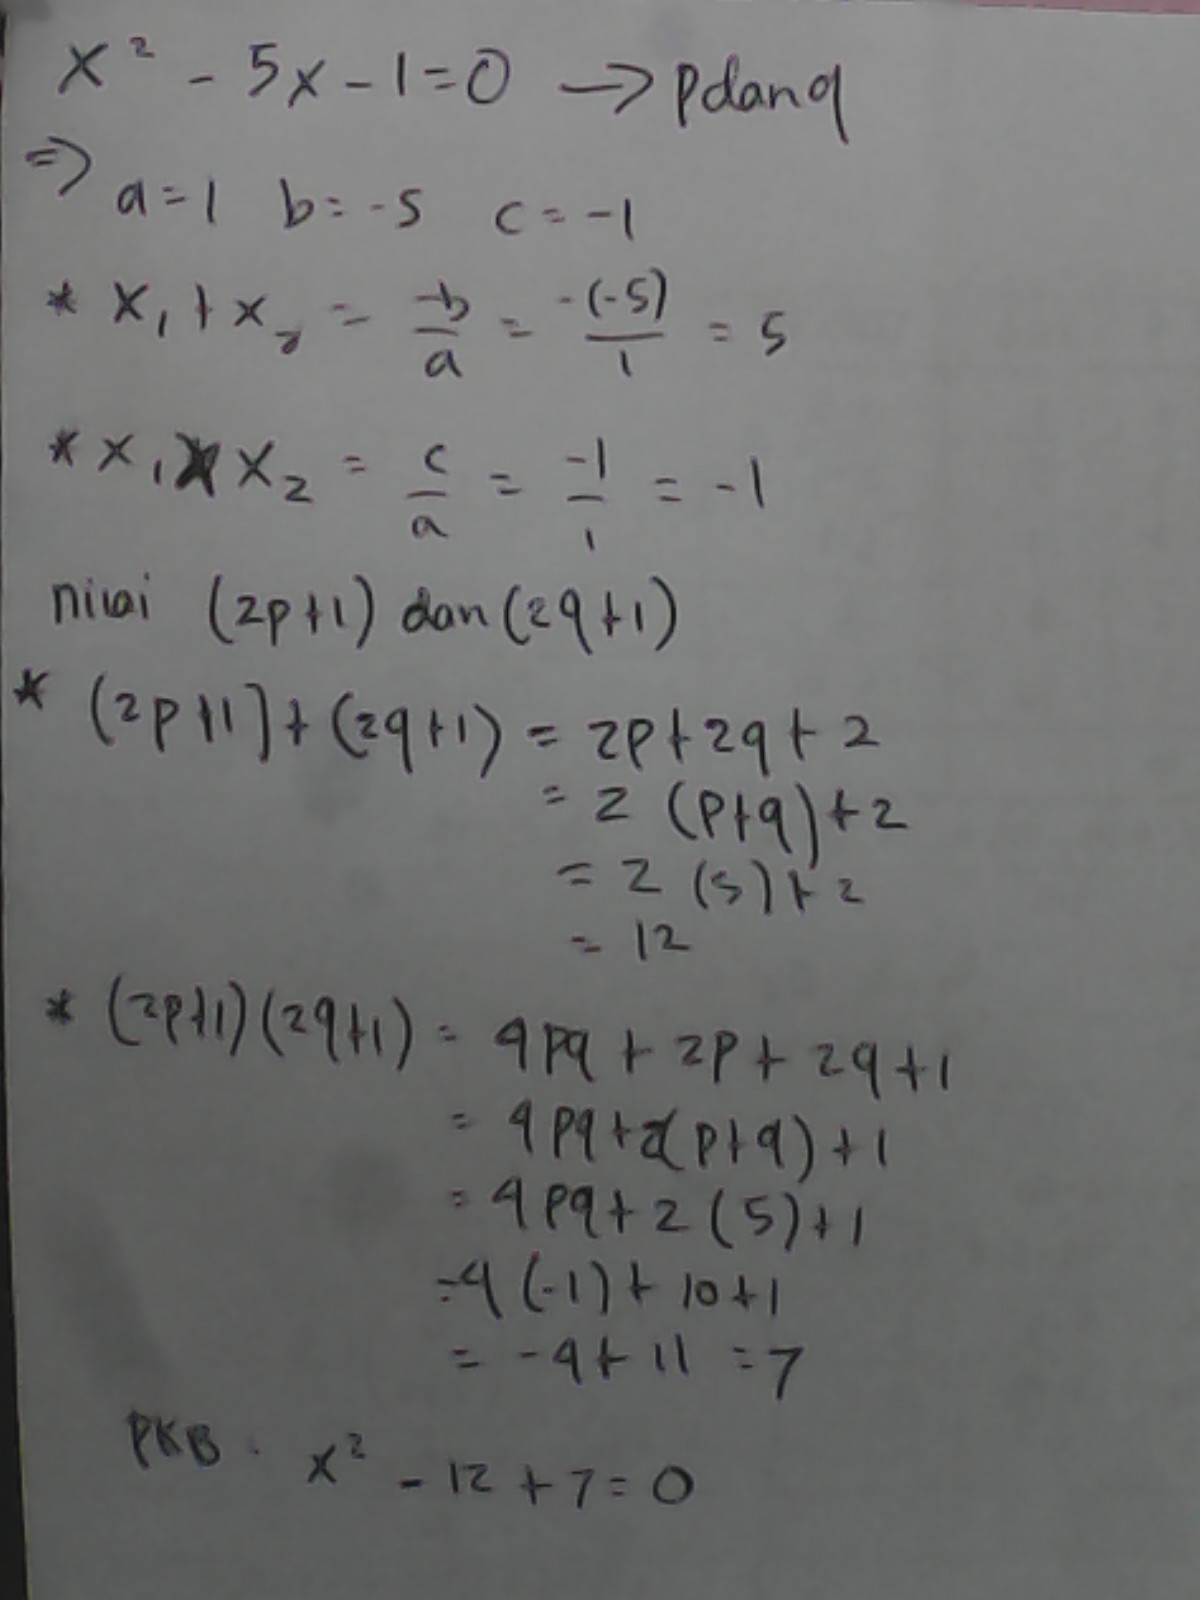 x² - 5x - 1 = 0 → p dan q
⇒ a = 1 b = -5 c = -1
* x₁ + x₂ = -b/a = -(-5)/1 = 5
* x₁ x x₂ = c/a = -1/1 = -1
nilai (2p+1) dan (2q+1)
* (2p+1] + (2q+1) = 2p + 2q + 2
= 2 (p+q) + 2
= 2 (5) + 2
= 12
* (2p+1)(2q+1) = 4pq + 2p + 2q + 1
= 4pq + 2(p+q) + 1
= 4pq + 2 (5) + 1
= 4 (-1) + 10 + 1
= -4 + 11 = 7
PKB : x² - 12 + 7 = 0